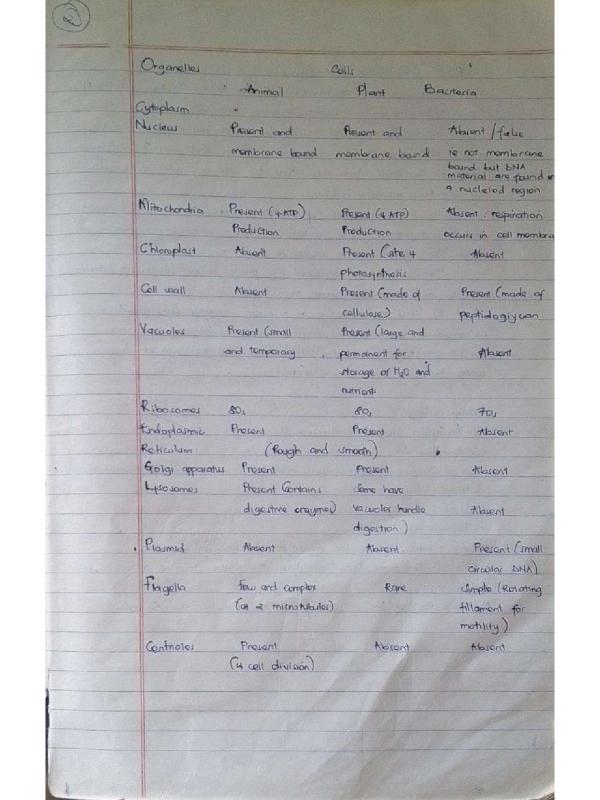 2
Organelles Cells
Animal Plant Bacteria
Cytoplasm -
Nucleus Present and Present and Absent / false
membrane bound membrane bound ie not membrane
bound but DNA
material are found in
a nucleiod region
Mitochondria Present (4 ATP) Present (4 ATP) Absent respiration
Production Production occurs in cell membra
Chloroplast Absent Present (site 4 Absent
photosynthesis
Cell wall Absent Present (made of Present (made of
cellulose) peptidoglycan
Vacuoles Present (small Present (large and
and temporary permanent for Absent
storage of H2O and
nutrients
Ribosomes 80s 80s 70s
Endoplasmic Present Present Absent
Reticulum (Rough and smooth)
Golgi apparatus Present Present Absent
Lysosomes Present Contains Some have
digestive enzymes) vacuoles handle Absent
digestion)
Plasmid Absent Absent Present (small
circular DNA)
Flagella few and complex Rare Simple (Rotating
2 microtubules) fillament for
motility)
Centrioles Present Absent Absent
(4 cell division)